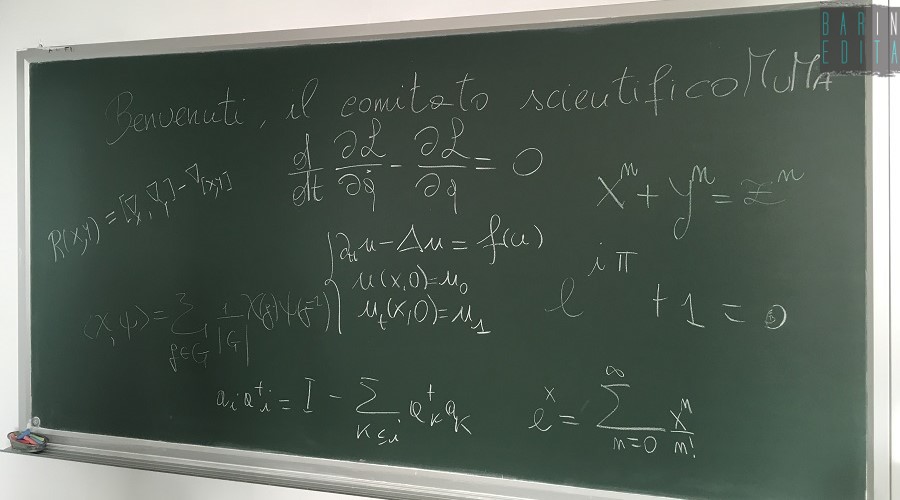 BARIN
EDITA
Benvenuti, il comitato scientifico MuMA
d/dt ∂L/∂q̇ - ∂L/∂q = 0
R(x,y) = [∇x, ∇y] - ∇[x,y]
xⁿ + yⁿ = zⁿ
∂ttu - Δu = f(u)
u(x,0) = u₀
uₜ(x,0) = u₁
e^{iπ} + 1 = 0
⟨χ,ψ⟩ = Σ_{g∈G} 1/|G| χ(g)ψ(g⁻¹)
aᵢa⁺ᵢ = I - Σ_{K≤i} a⁺_K a_K
eˣ = Σ_{n=0}^{∞} xⁿ/n!